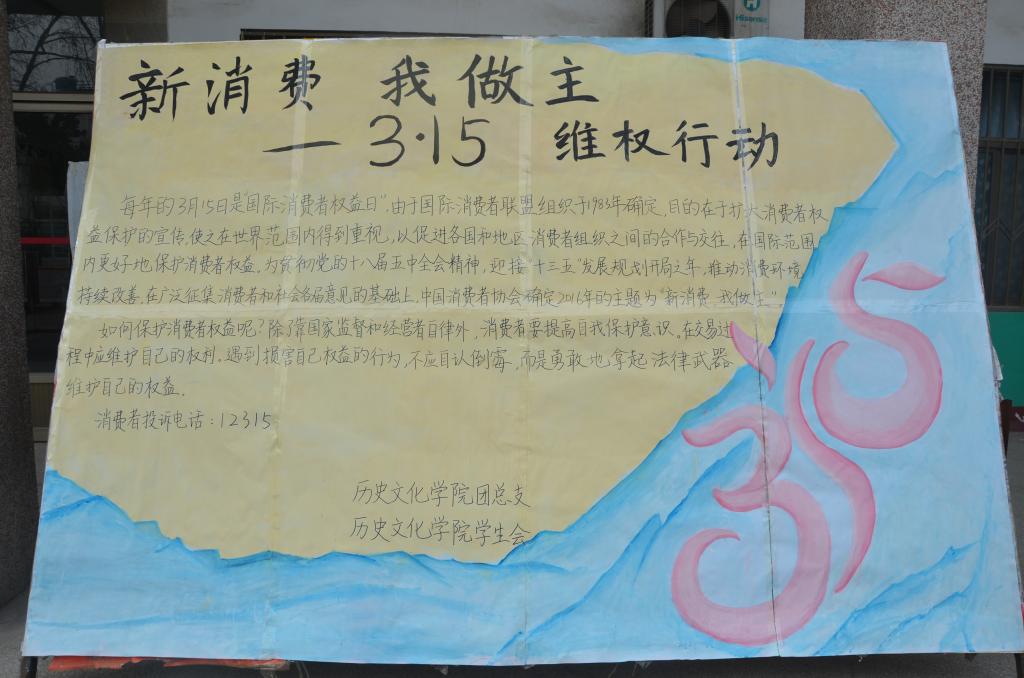 Hisense
新消费 我做主
— 3·15 维权行动
每年的3月15日是"国际消费者权益日",由于国际消费者联盟组织于1983年确定,目的在于扩大消费者权
益保护的宣传,使之在世界范围内得到重视,以促进各国和地区消费者组织之间的合作与交往,在国际范围
内更好地保护消费者权益。为贯彻党的十八届五中全会精神,迎接"十三五"发展规划开局之年,推动消费环境
持续改善,在广泛征集消费者和社会各届意见的基础上,中国消费者协会确定2016年的主题为"新消费 我做主"。
如何保护消费者权益呢?除了靠国家监督和经营者自律外,消费者要提高自我保护意识。在交易过
程中应维护自己的权利。遇到损害自己权益的行为,不应自认倒霉,而是勇敢地拿起法律武器
维护自己的权益。
消费者投诉电话:12315
315
历史文化学院团总支
历史文化学院学生会